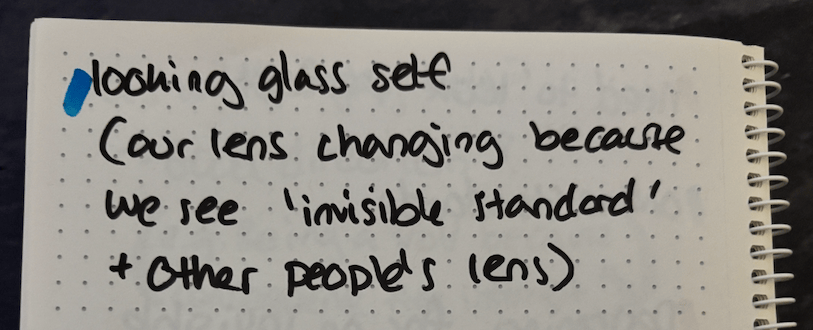 looking glass self
(our lens changing because
we see 'invisible standard'
+ other people's lens)